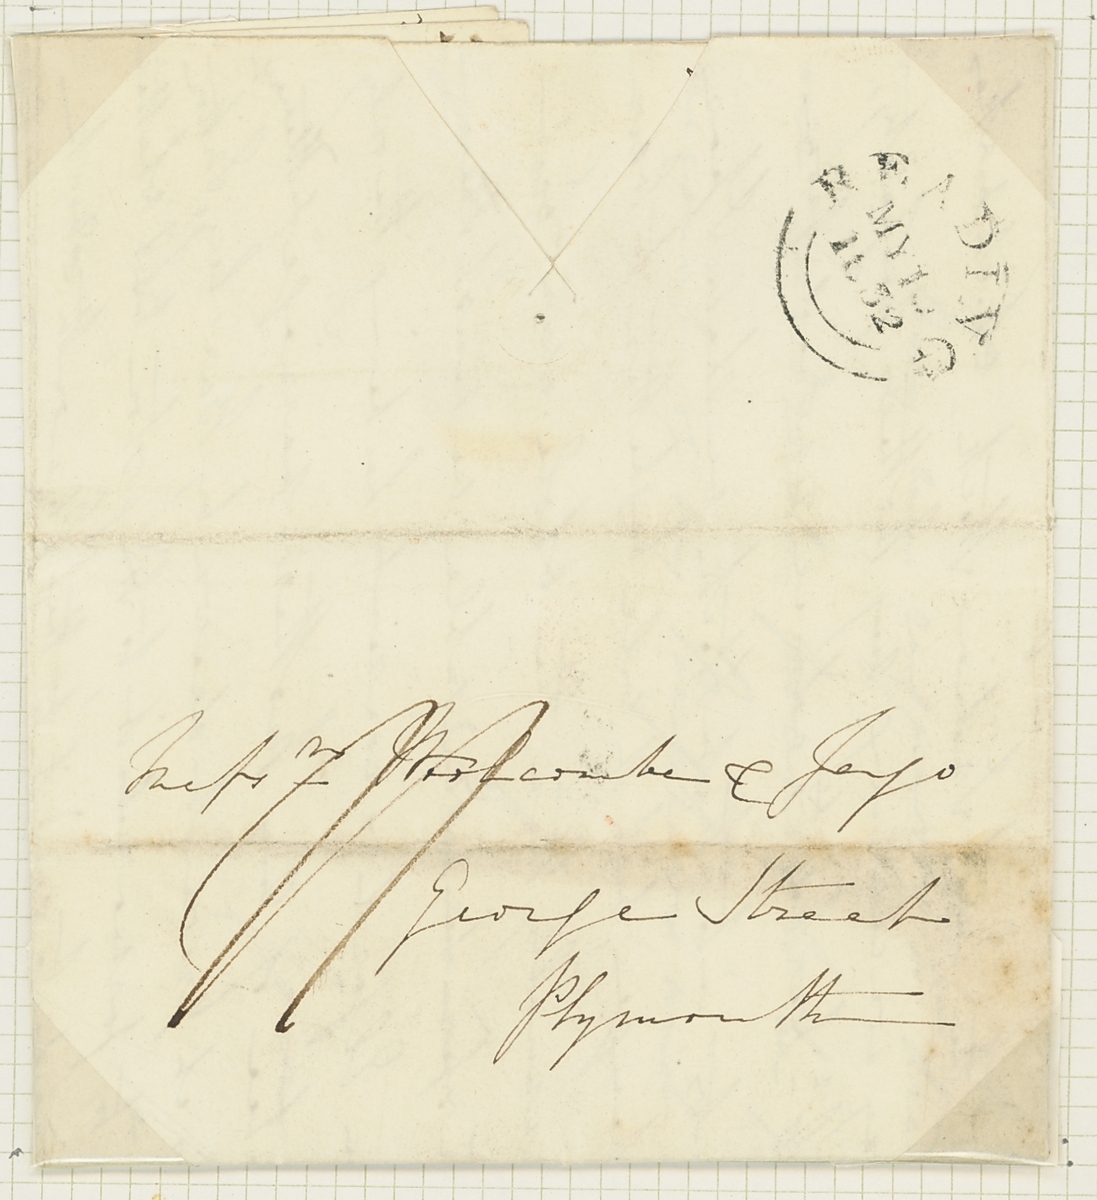 READING
MY 1
1832
Messrs Woolcombe & Jago
George Street
Plymouth